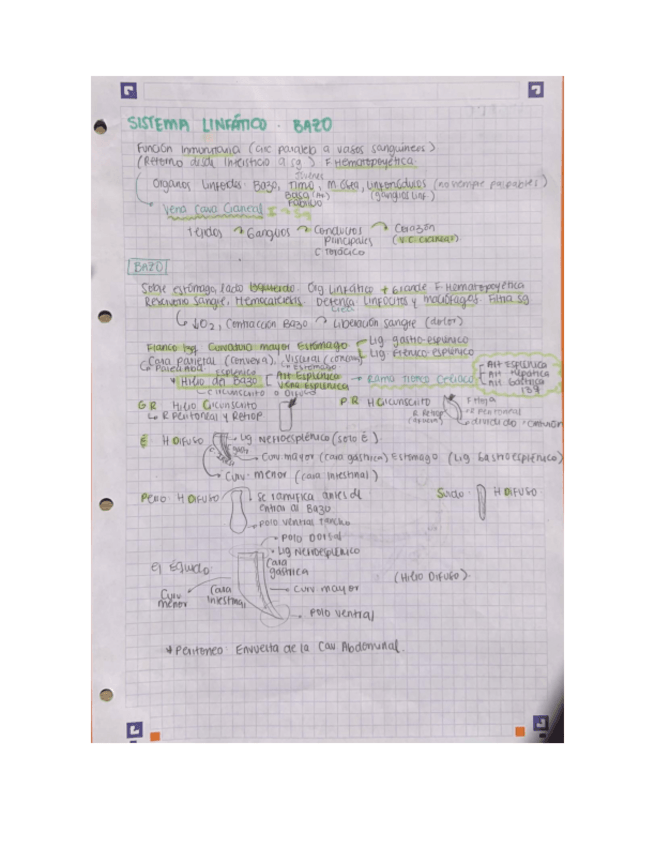 SISTEMA LINFÁTICO · BAZO
Función Inmunitaria (circ paralela a vasos sanguíneos)
(Retorno desde Intersticio a sg) F. Hematopoyética.
Jóvenes
Organos linfoides: Bazo, Timo, M. Osea, Linfonódulos (no siempre palpables)
(ganglios linf)
Vena Cava Craneal
Tejidos → Ganglios → Conductos Principales → Corazón
(V.C. craneal)
BAZO
Sobre estómago, lado Izquierdo. Org Linfático + Grande F. Hematopoyética
Reservorio Sangre, Hemocateresis. Defensa Linfocitos y macrófagos. Filtra sg
↓O2, Contracción Bazo → Liberación sangre (dolor)
Flanco Izq Curvadura mayor Estómago
Lig gastro esplénico
Lig Frénico esplénico
Cara parietal (convexa). Visceral (concava)
→ Estómago
Hilio del Bazo
Art Esplénica
Vena Esplénica
→ Rama Tronco Celiaco
Art Esplénica
Art Hepática
Art Gástrica Izq
Circunscrito o Difuso
GR Hilio Circunscrito
↳ R Peritoneal y Retrop
PR H Circunscrito
R Retrop
R Peritoneal
É H Difuso
Lig Nefroesplénico (solo É)
Curv mayor (cara gástrica) Estómago (Lig Gastroesplénico)
Curv menor (cara Intestinal)
Perro H Difuso
Se ramifica antes de entrar al Bazo
Polo Ventral + ancho
Suido H Difuso
Polo Dorsal
Lig Nefroesplénico
El Equido
Cara gástrica
Curv menor
Cara Intestinal
Curv mayor
(Hilio Difuso).
Polo Ventral
Peritoneo: Envuelta de la Cav Abdominal.